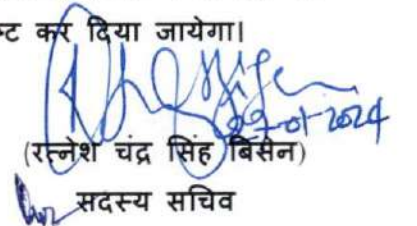 ष्ट कर दिया जायेगा।
29-01-2024
(रत्नेश चंद्र सिंह बिसेन)
सदस्य सचिव